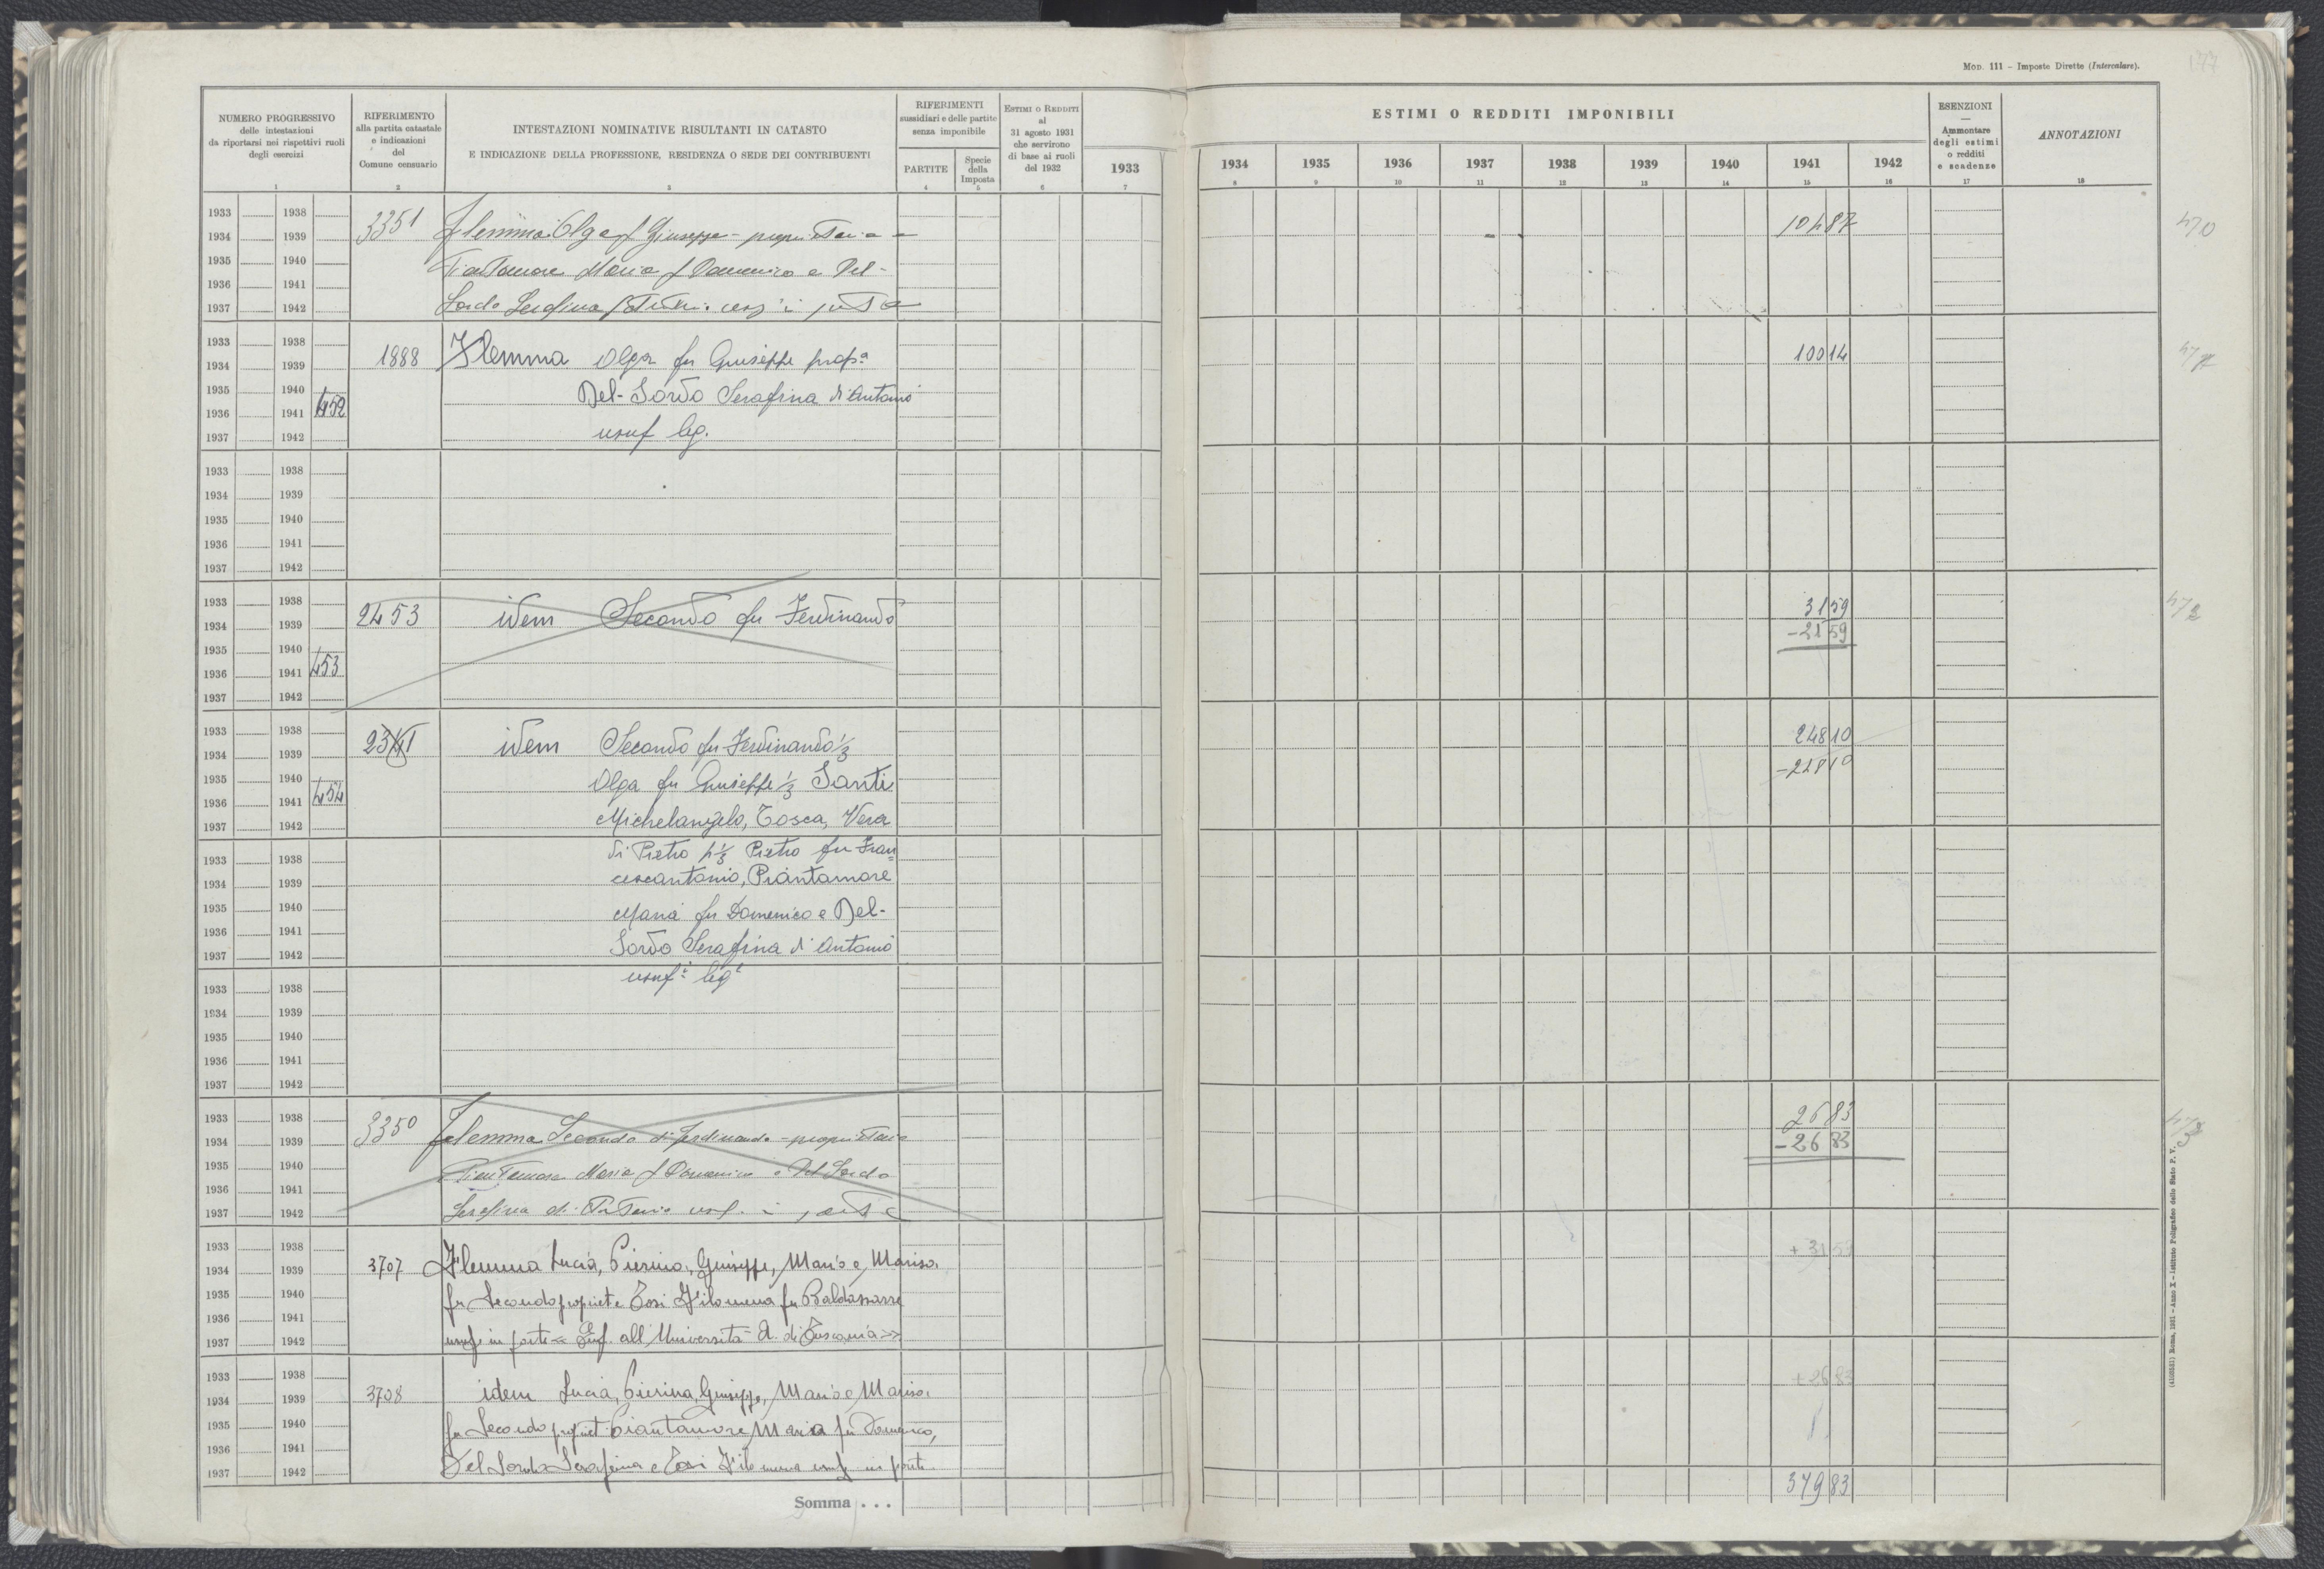 Mod. 111 – Imposte Dirette (Intercalare).
177
NUMERO PROGRESSIVO
delle intestazioni
da riportarsi nei rispettivi ruoli
degli esercizi
1
RIFERIMENTO
alla partita catastale
e indicazioni
del
Comune censuario
2
INTESTAZIONI NOMINATIVE RISULTANTI IN CATASTO
E INDICAZIONE DELLA PROFESSIONE, RESIDENZA O SEDE DEI CONTRIBUENTI
3
RIFERIMENTI
sussidiari e delle partite
senza imponibile
PARTITE
4
Specie
della
Imposta
5
Estimi o Redditi
al
31 agosto 1931
che servirono
di base ai ruoli
del 1932
6
1933
7
ESTIMI O REDDITI IMPONIBILI
1934 1935 1936 1937 1938 1939 1940 1941 1942
8 9 10 11 12 13 14 15 16
ESENZIONI
Ammontare
degli estimi
o redditi
e scadenze
17
ANNOTAZIONI
18
1933 1938
1934 1939 3351 Flemma Olga f Giuseppe - proprietaria - 10487 470
1935 1940 Piantamore Maria f Domenico e Del-
1936 1941
1937 1942 Sordo Serafina
1933 1938
1934 1939 1888 Flemma Olga fu Giuseppe propa 10014
1935 1940 Del-Sordo Serafina di Antonio
1936 1941 452
1937 1942 usuf leg.
1933 1938
1934 1939
1935 1940
1936 1941
1937 1942
1933 1938 3159
1934 1939 2453 idem Secondo fu Ferdinando 472
1935 1940 -2159
1936 1941 453
1937 1942
1933 1938 24810
1934 1939 idem Secondo fu Ferdinando 1/3
1935 1940 Olga fu Giuseppe 1/3 Santi
1936 1941 454
1937 1942 Michelangelo, Tosca, Vera
1933 1938 di Pietro p 1/3 Pietro fu Fran=
1934 1939 cescantonio, Piantamore
1935 1940 Maria fu Domenico e Del-
1936 1941
1937 1942 Sordo Serafina di Antonio
1933 1938 usuf.i leg.i
1934 1939
1935 1940
1936 1941
1937 1942
1933 1938 2683
1934 1939 3350 Flemma Secondo di Ferdinando - proprietario -2683
1935 1940 Piantamore Maria f Domenico e Del Sordo
1936 1941
1937 1942 Serafina di Antonio usuf. in parte
1933 1938 +3159
1934 1939 3707 Flemma Lucia, Pierina, Giuseppe, Mario e Marisa
1935 1940 fu Secondo propriet e Tosi Filomena fu Baldassarre
1936 1941
1937 1942 usuf in parte « Enf. all Università A. di Tuscania »
1933 1938 +2683
1934 1939 3708 idem Lucia, Pierina, Giuseppe, Mario e Marisa
1935 1940 fu Secondo propriet Piantamore Maria fu Domenico,
1936 1941
1937 1942 Del Sordo Serafina e Tosi Filomena usuf in parte
Somma . . . 37983
(4105551) Roma, 1931 – Anno X – Istituto Poligrafico dello Stato P. V.